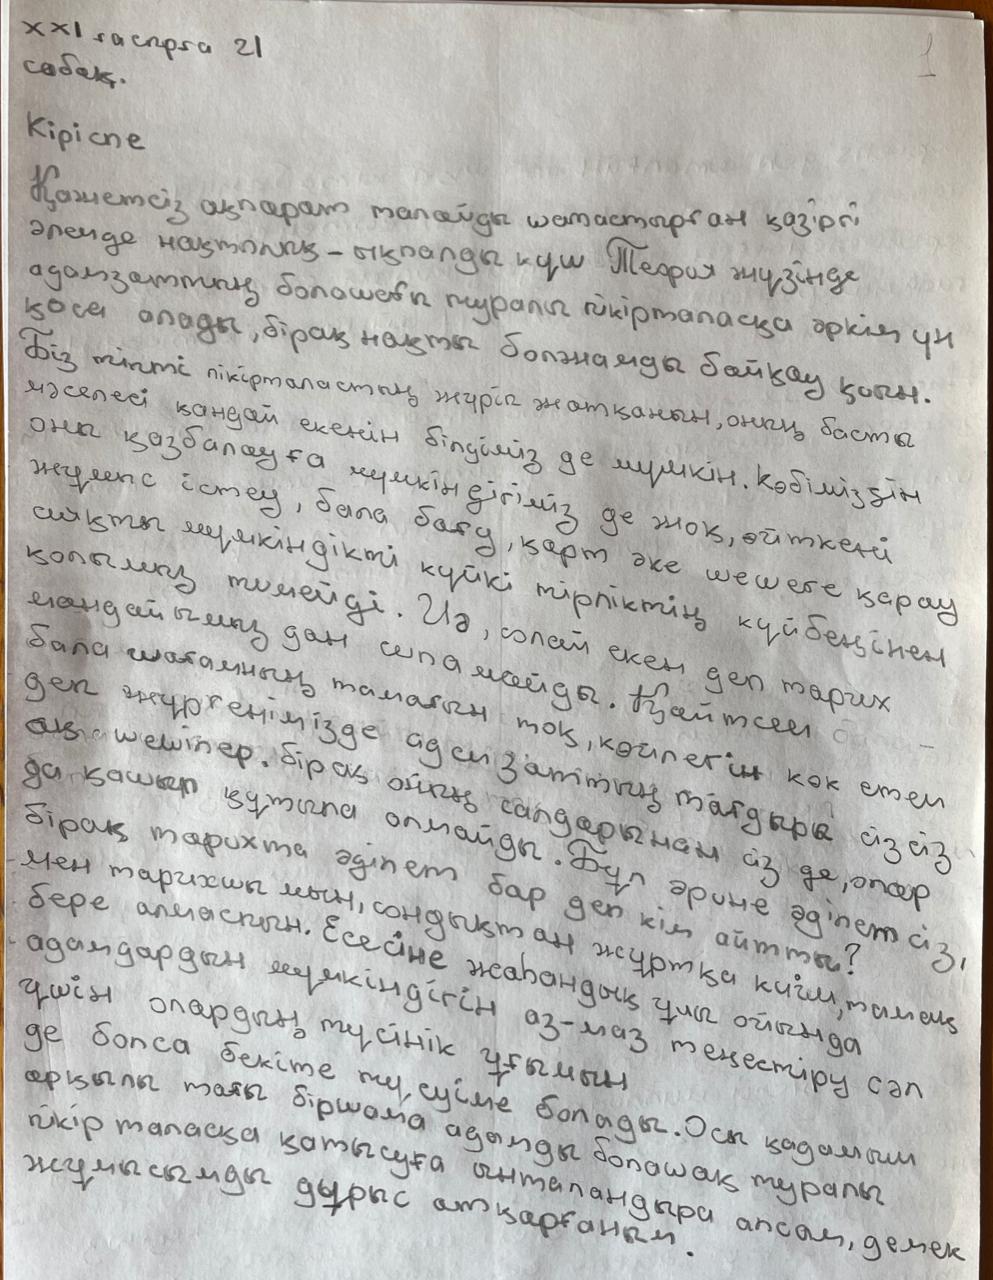 1
XXI ғасырға 21
сабақ.
Кіріспе
Қажетсіз ақпарат талайды шатастырған қазіргі
әлемде нақтылық - ықпалды күш Теория жүзінде
адамзаттың болашағы туралы пікірталасқа әркім үн
қоса алады, бірақ нақты болжамды байқау қиын.
Біз тіпті пікірталастың жүріп жатқанын, оның басты
мәселесі қандай екенін білдіміз де мүмкін. Көбіміздін
оны қазбалауға мүмкіндігіміз де жоқ, өйткені
жұмыс істеу, бала бағу, қарт әке шешеге қарау
сияқты мүмкіндікті күйкі тірліктің күйбеңінен
қолымыз тимейді. Иә, солай екен деп тарих
маңдайымыздан сипамайды. Қайтсем
бала шағамның тамағын тоқ, көйлегін көк етем
деп жүргенімізде адамзаттың тағдыры сізсіз
ақ шешілер. бірақ оның салдарынан сіз де, олар
да қашып құтыла алмайды. Бұл әрине әділетсіз,
бірақ тарихта әділет бар деп кім айтты?
Мен тарихшымын, сондықтан жұртқа киім, тамақ
бере алмаспын. Есесіне жаһандық ұлы ойында
адамдардын мүмкіндігін аз-маз теңестіру сәл
үшін олардың түсінік ұғымын
де болса бекіте түсуіме болады. Осы қадамым
арқылы тағы біршама адамды болашақ туралы
пікірталасқа қатысуға ынталандыра алсам, демек
жұмысымды дұрыс атқарғаным.